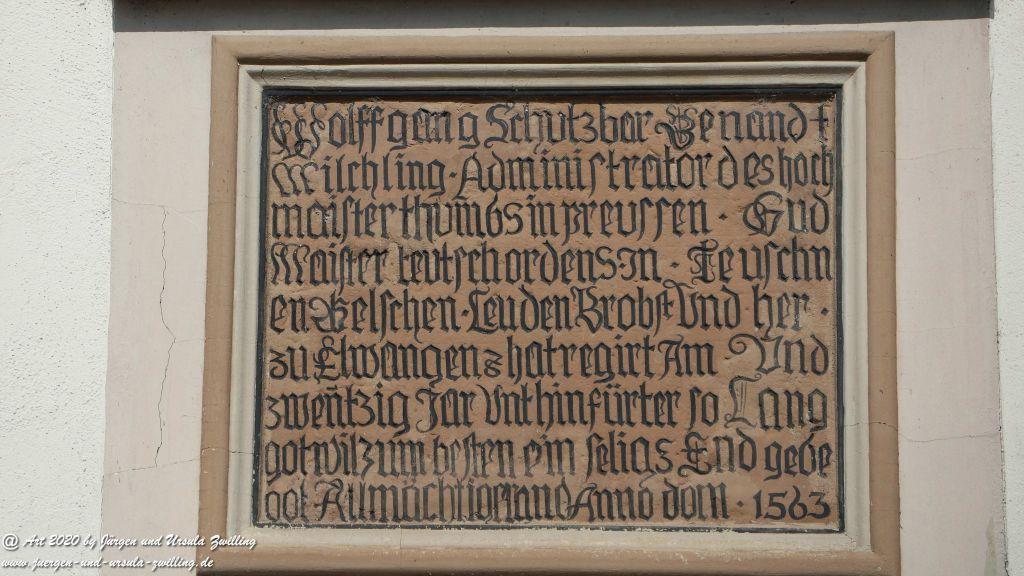 Wolffgang Schutzbar Genandt
Milchling · Administrator des hoch
maisterthumbs in preussen · Und
Maister teutsch ordens · In · Teuschn
en Welschen · Leuden Brobst Und her ·
zu Elwangen z hat regirt Am · Und
zwentzig Jar Unt hinfürter so Lang
got wil zum besten ein seligs End gebe
got Allmächtiger Anno dom · 1563
@ Art 2020 by Jürgen und Ursula Zwilling
www.juergen-und-ursula-zwilling.de